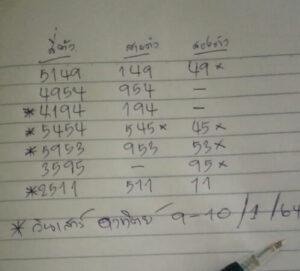 สี่ตัว สามตัว สองตัว
5149 149 49×
4954 954 –
*4194 194 –
*5454 545× 45×
*5953 953 53×
3595 – 95×
*2511 511 11
* วันเสาร์ อาทิตย์ 9-10/1/64